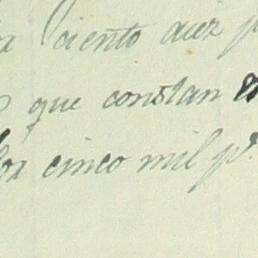 ciento diez p
que constan
los cinco mil p.